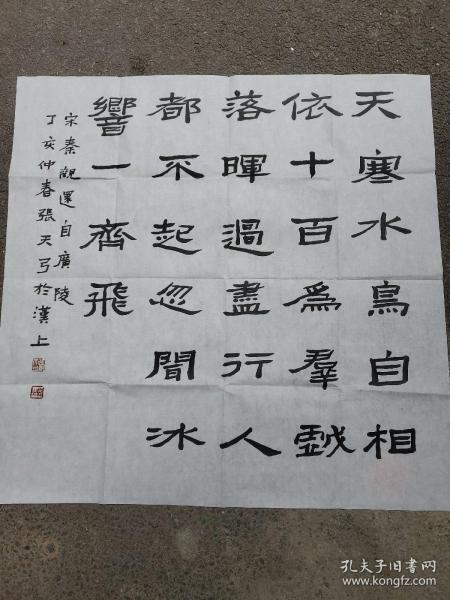 天寒水鳥自相
依十百爲羣戲
落暉過盡行人
都不起忽聞冰
響一齊飛
宋秦觀還自廣陵
丁亥仲春張天弓於漢上
孔夫子旧書网
www.kongfz.com